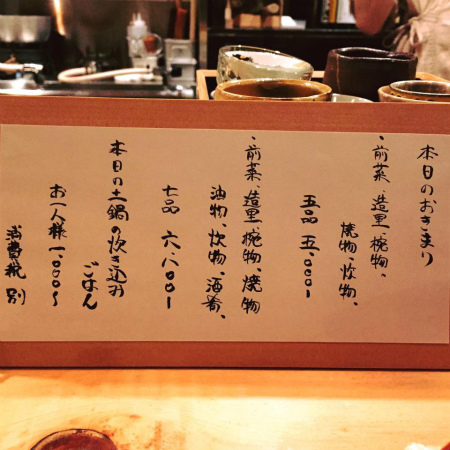 本日のおきまり
・前菜、造里、椀物、
焼物、炊物、
五品 五、〇〇〇ー
・前菜、造里、椀物、焼物
油物、炊物、酒肴、
七品 六、八〇〇ー
本日の土鍋の炊き込み
ごはん
お一人様 一、〇〇〇〜
消費税 別